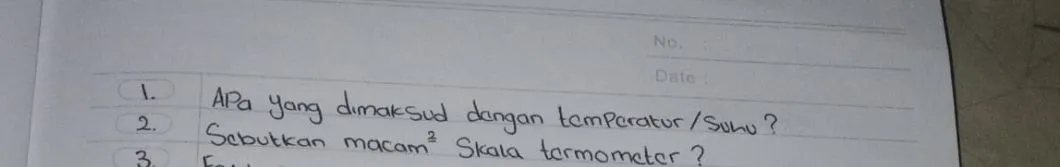 No. :
Date :
1. APa yang dimaksud dengan temperatur/Suhu?
2. Sebutkan macam² Skala termometer?
3.